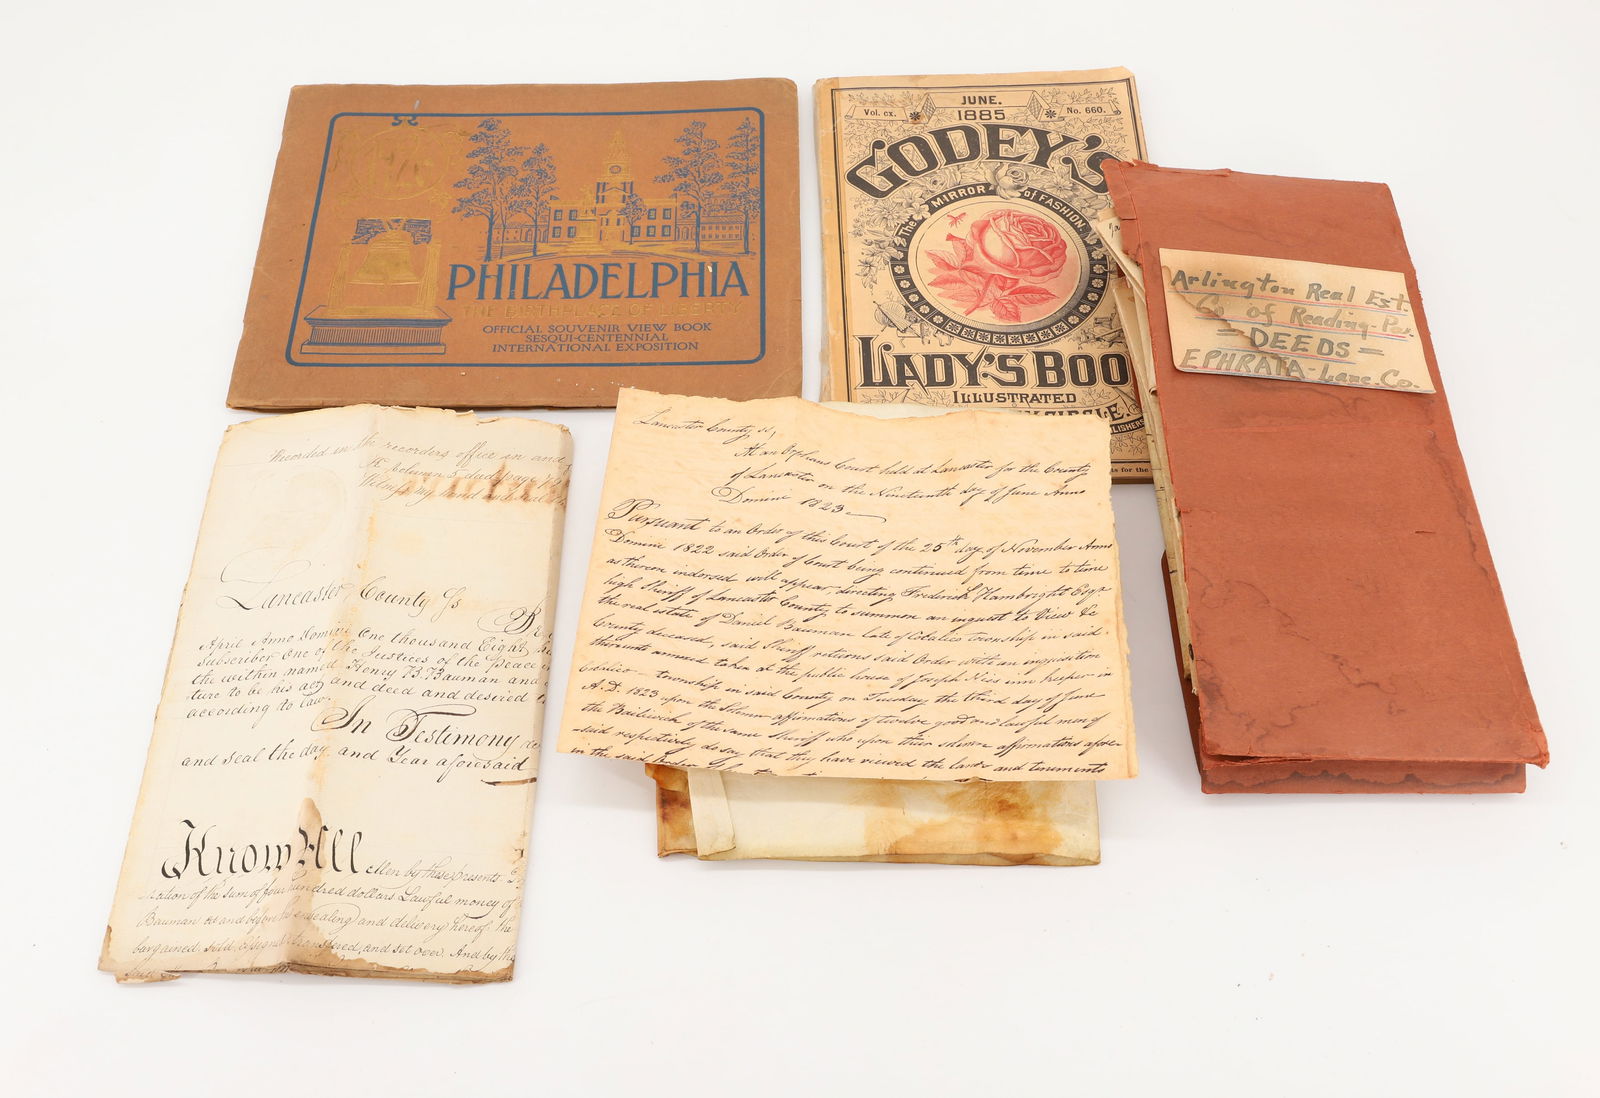 PHILADELPHIA
THE BIRTHPLACE OF LIBERTY
OFFICIAL SOUVENIR VIEW BOOK
SESQUI-CENTENNIAL
INTERNATIONAL EXPOSITION
JUNE.
Vol. cx. 1885 No. 660.
GODEY'S
The MIRROR of FASHION.
LADY'S BOO
ILLUSTRATED
CIRCLE.
LISHERS
ts for the
Arlington Real Est.
Co of Reading-Pa.
=DEEDS=
EPHRATA-Lanc.Co.
Recorded in the recorders office in and
Volumn 5 deeds page
Witness my hand and seal
Lancaster County Ss
April Anno Domini One thousand Eight
subscriber One of the Justices of the Peace
the within named Henry B. Bauman and
ture to be his act and deed and desired
according to law.
In Testimony
and seal the day and Year aforesaid
Know All Men by these presents
ration of the sum of four hundred dollars Lawful money of
Bauman at and before the ensealing and delivery hereof the
bargained, sold, assigned transfered, and set over. And by the
Lancaster County ss,
At an Orphans Court held at Lancaster for the County
of Lancaster on the Nineteenth day of June Anno
Domini 1823
Pursuant to an Order of this Court of the 25th day of November Anno
Domini 1822 said Order of Court being continued from time to time
as thereon indorsed will appear, directing Frederick Hambright Esqr
high Sheriff of Lancaster County to summon an inquest to View &c
the real estate of Daniel Bauman late of Cocalico township in said
County deceased, said Sheriff returns said Order with an inquisition
thereunto annexed taken at the public house of Joseph Hiss inn keeper in
Cocalico township in said County on Tuesday the third day of June
A.D. 1823 upon the Solemn affirmations of twelve good and lawful men of
the Bailiwick of the same Sheriff who upon their solemn affirmations afore
said respectively do say that they have viewed the lands and tenements
in the said Order